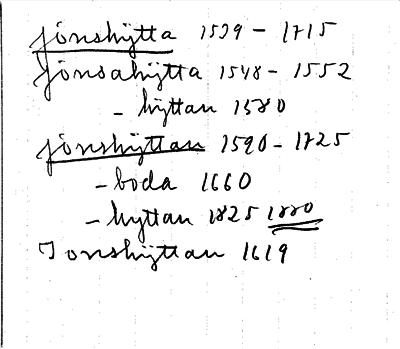 jönshÿtta 1539 – 1715
Jönsahÿtta 1548 – 1552
– hÿttan 1580
jönshÿttan 1590 – 1725
– boda 1660
– hyttan 1825 1880
Jonshÿttan 1619